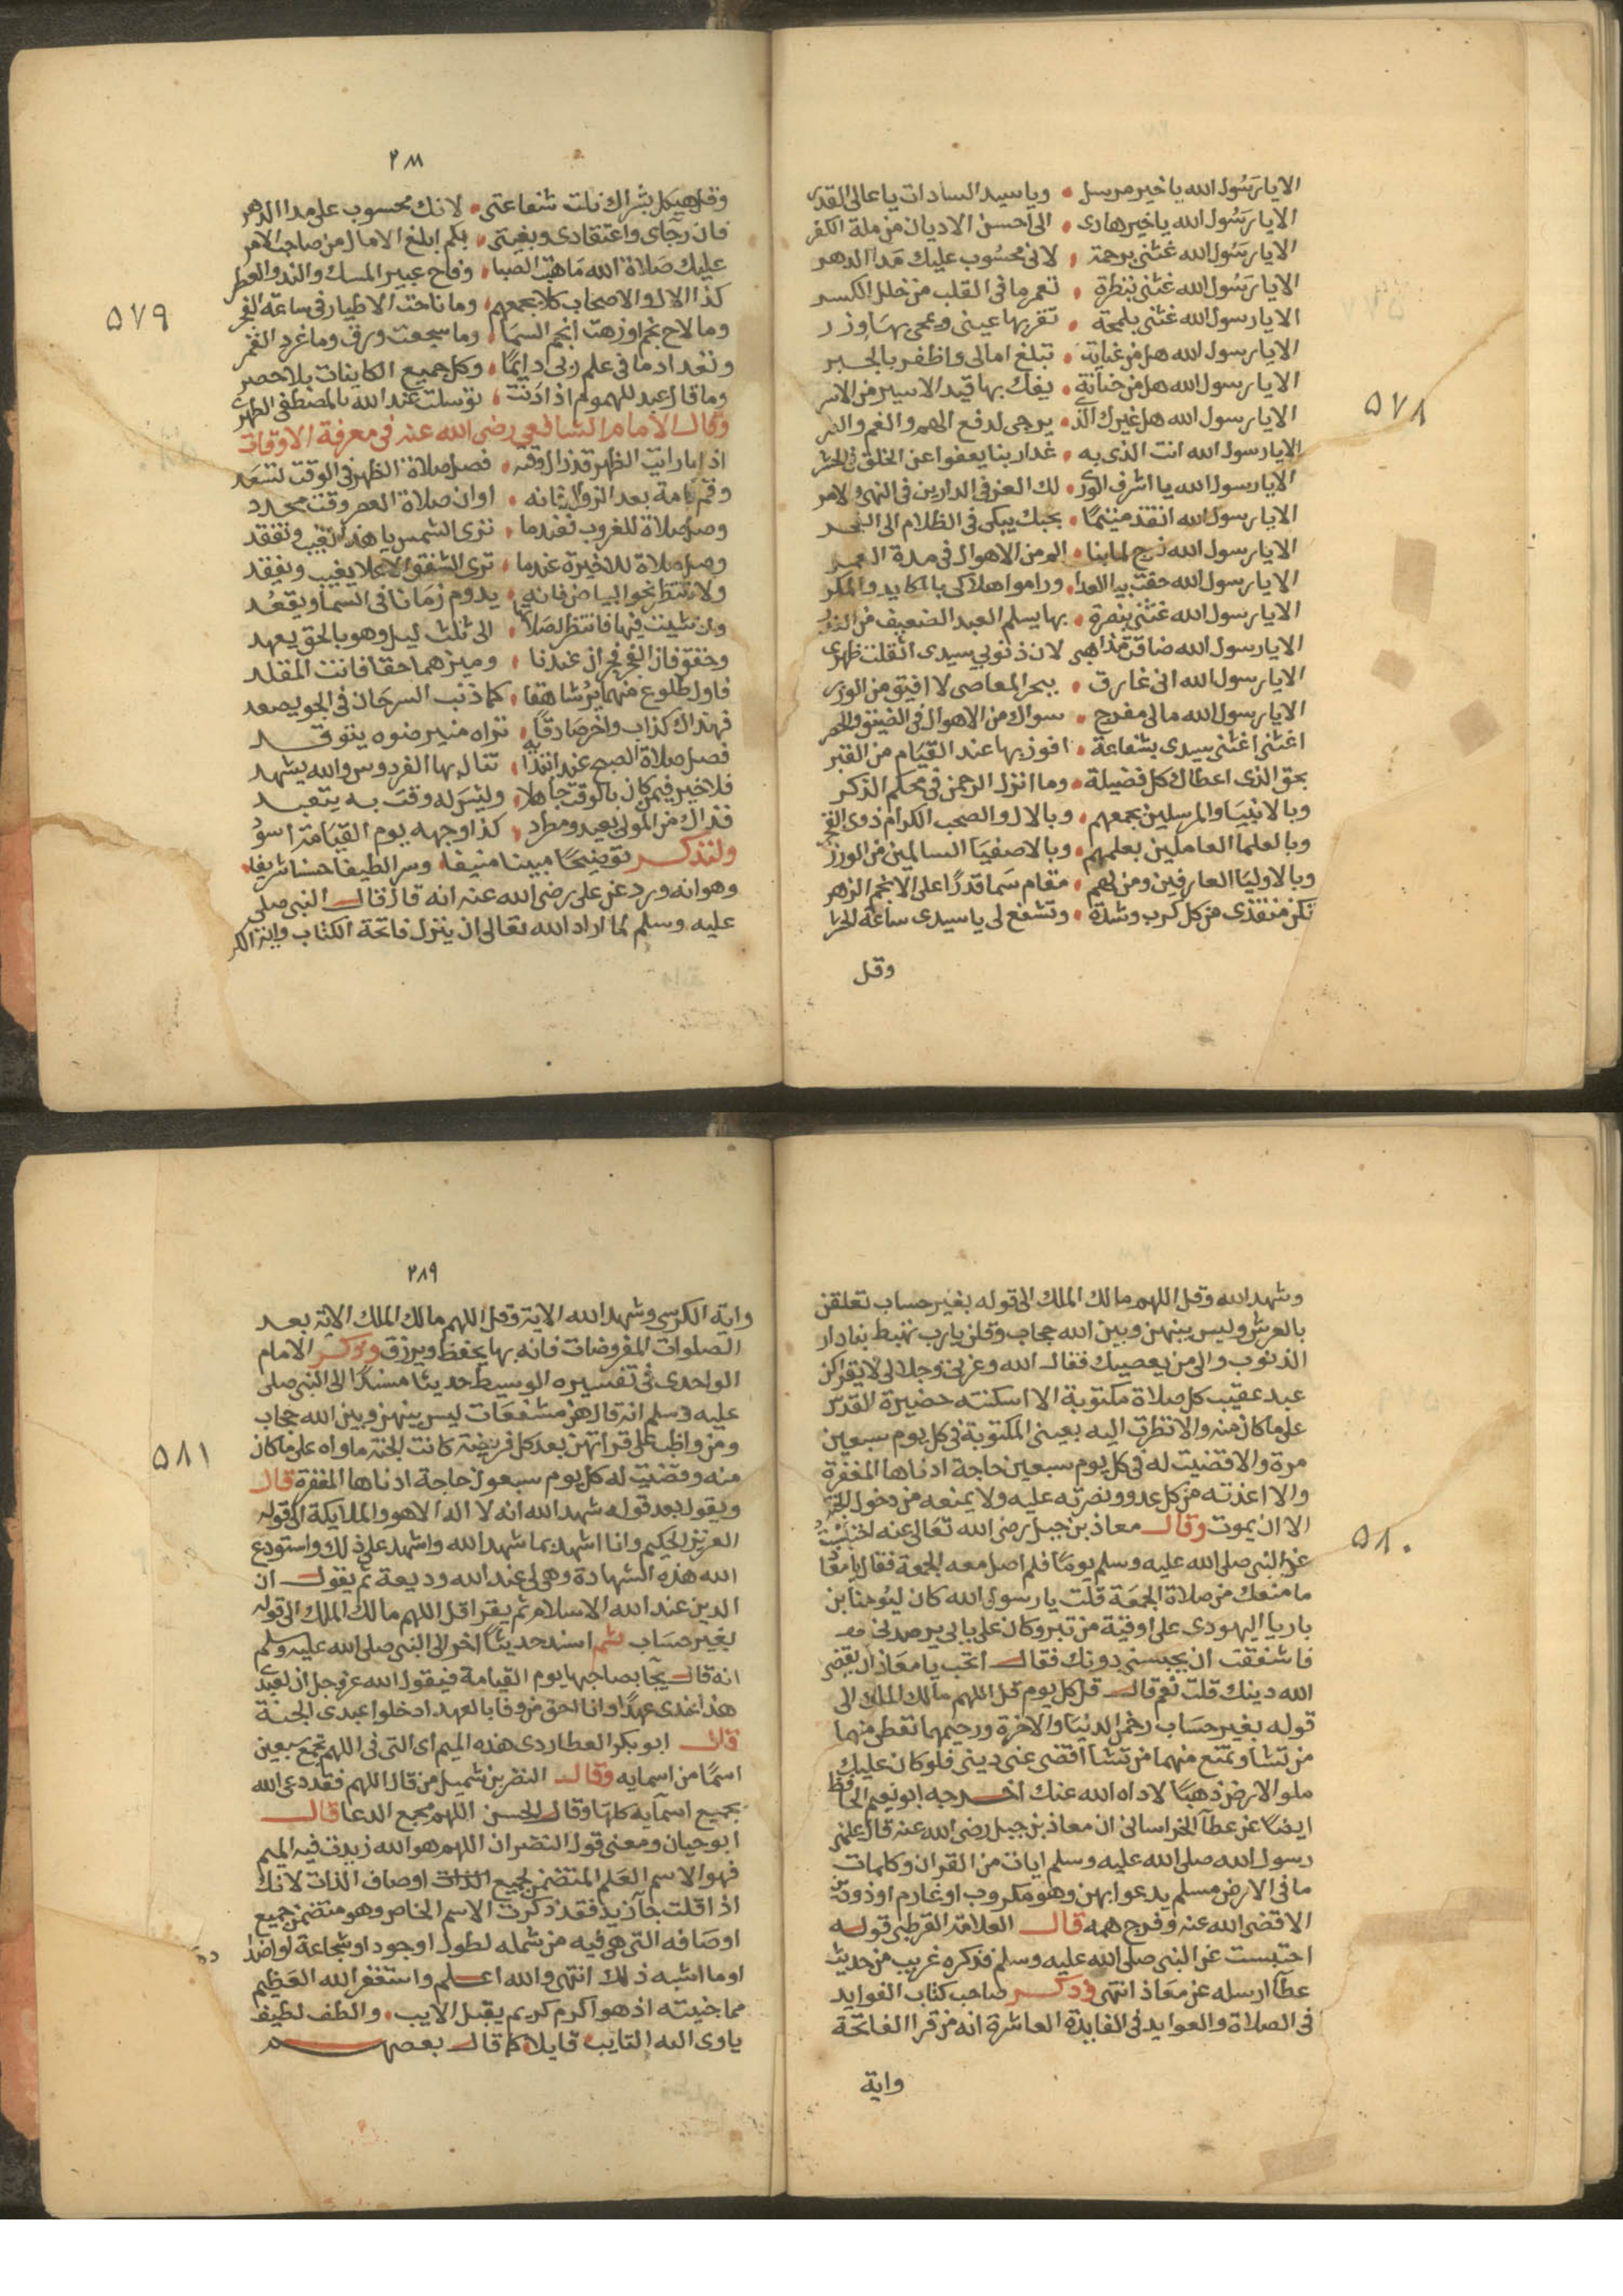 الايا رسول الله يا خير مرسل • ويا سيد السادات يا عالى القدر
الايا رسول الله يا خير هادى • الى احسن الاديان من ملة الكفر
الايا رسول الله غثنى برحمة • لانى محسوب عليك مدا الدهر
الايا رسول الله غثنى بنظرة • تعمر ما فى القلب من خلل الكسر
الايا رسول الله غثنى بلمحة • تقر بها عينى ويمحى بها وزر
الايا رسول الله هل من غياثة • تبلغ امالى واظفر بالجبر
الايا رسول الله هل من حنانة • يفك بها قيد الاسير من الاسر
الايا رسول الله هل غيرك الذ • يرجى لدفع الهم والغم والضر
الايا رسول الله انت الذى به • غدا ربنا يعفوا عن الخلق فى الحشر
الايا رسول الله يا اشرف الورى • لك العز فى الدارين فى النهى والامر
الايا رسول الله انقذ متيما • بحبك يبكى فى الظلام الى الفجر
الايا رسول الله فرج لما بنا • الم من الاهوال فى مدة العمر
الايا رسول الله حفت بي العدا • وراموا هلاكى بالمكايد والمكر
الايا رسول الله غثنى بنصرة • بها يسلم العبد الضعيف من
الايا رسول الله ضاقت مذاهبى لان ذنوبي سيدى اثقلت ظهرى
الايا رسول الله انى غارق • ببحر المعاصى لا افيق من الوزر
الايا رسول الله مالى مفرج • سواك من الاهوال فى الضيق والحصر
اغثنى اغثنى سيدى بشفاعة • افوز بها عند القيام من القبر
بحق الذى اعطاك كل فضيلة • وما انزل الرحمن فى محكم الذكر
وبالانبيا والمرسلين بجمعهم • وبالال والصحب الكرام ذوى الفخر
وبالعلما العاملين بعلمهم • وبالاصفيا السالمين من الوزر
وبالاوليا العارفين ومن لهم • مقام سما قدرا على الانجم الزهر
تكن منقذى من كل كرب وشدة • وتشفع لى يا سيدى ساعة الحشر
وقل
٥٧٨
٢٨٨
وقل هيكل بشراك نلت شفاعتى • لانك محسوب على مدا الدهر
فان رجاى واعتقادى وبغيتى • بكم ابلغ الامال من صاحب الامر
عليك صلاة الله ما هبت الصبا • وفاح عبير المسك والند والعطر
كذا الال والاصحاب كلا بجمعهم • وما ناحت الاطيار فى ساعة الفجر
وما لاح نجم او زهت انجم السما • وما سجعت ورق وما غرد القمر
وتعداد ما فى علم ربى دايما • وكل جميع الكاينات بلا حصر
وما قال عبد للهموم اذا دنت • توسلت عند الله بالمصطفى الطهر
وقال الامام الشافعي رضى الله عنه فى معرفة الاوقات
اذا ما رايت الظهر قد زال وقته • فصل صلاة الظهر فى الوقت تسعد
وقم قامة بعد الزوال فانه • اوان صلاة العصر وقت محدد
وصل صلاة للغروب فعندما • ترى الشمس يا هذا تغيب وتفقد
وصل صلاة للاخيرة عندما • ترى الشفق الاعلا يغيب ويفقد
ولا تنتظر نحو البياض فانه • يدوم زمانا فى السما ويقعد
وان شيت فيها فانتظر لصلاتها • الى ثلث ليل وهو بالحق يعهد
وحقق فان الفجر فجران عندنا • وميزهما حقا فانت المقلد
فاول طلوع منهما يز شاهقا • كما ذنب السرحان فى الجو يصعد
فهذاك كذاب واخر صادقا • تراه منير ضوه يتوقد
فصل صلاة الصبح عند ابتدائه • تنال بها الفردوس والله يشهد
فلا خير فيمن كان بالوقت جاهلا • وليس له وقت به يتعبد
فذاك من المولى بعيد ومطرد • كذا وجهه يوم القيامة اسود
ولنذكر توضيحا مبينا منيفا • وسرا لطيفا حسنا شريفا •
وهو انه ورد عن على رضى الله عنه انه قال قال النبى صلى
عليه وسلم لما اراد الله تعالى ان ينزل فاتحة الكتاب واية الكر
٥٧٩
وشهد الله وقل اللهم مالك الملك الى قوله بغير حساب تعلقن
بالعرش وليس بينهن وبين الله حجاب وقلن يارب تهبط بنا دار
الذنوب والى من يعصيك فقال الله وعزتى وجلالى لا يقراكن
عبد عقيب كل صلاة مكتوبة الا اسكنته حضيرة القدس
على ما كان منه والا نظرت اليه بعينى المكتوبة فى كل يوم سبعين
مرة والا قضيت له فى كل يوم سبعين حاجة ادناها المغفرة
والا اعذته من كل عدو ونصرته عليه ولا يمنعه من دخول الجنة
الا ان يموت وقال معاذ بن جبل رضى الله تعالى عنه احتبست
عن النبى صلى الله عليه وسلم يوما فلم اصل معه الجمعة فقال يا معاذ
ما منعك من صلاة الجمعة قلت يا رسول الله كان ليوحنا بن
باريا اليهودى على اوقية من تبر وكان على بابى يرصدنى
فاشفقت ان يحبسنى دونك فقال اتحب يا معاذ ان يقضى
الله دينك قلت نعم قال قل كل يوم قل اللهم مالك الملك الى
قوله بغير حساب رحمن الدنيا والاخرة ورحيمهما تعطى منهما
من تشا وتمنع منهما من تشا اقض عنى دينى فلو كان عليك
ملو الارض ذهبا لاداه الله عنك اخرجه ابو نعيم الحافظ
ايضا عن عطا الخراسانى ان معاذ بن جبل رضى الله عنه قال علمنى
رسول الله صلى الله عليه وسلم ايات من القران وكلمات
ما فى الارض مسلم يدعوا بهن وهو مكروب او غارم او ذو دين
الا قضى الله عنه وفرج همه قال العلامة القرطبى قوله
احتبست عن النبى صلى الله عليه وسلم فذكره غريب من حديث
عطا ارسله عن معاذ انتهى وذكر صاحب كتاب الفوايد
فى الصلاة والعوايد فى الفايدة العاشرة انه من قرا الفاتحة
واية
٥٨٠
٢٨٩
واية الكرسى وشهد الله الاية وقل اللهم مالك الملك الاية بعد
الصلوات المفروضات فانه بها يحفظ ويرزق وذكر الامام
الواحدى فى تفسيره الوسيط حديثا مسندا الى النبى صلى
عليه وسلم انه قال هن مشفعات ليس بينهن وبين الله حجاب
ومن واظب على قراتهن بعد كل فريضة كانت الجنة ماواه على ما كان
منه وقضيت له كل يوم سبعون حاجة ادناها المغفرة قال
ويقول بعد قوله شهد الله انه لا اله الا هو والملايكة الى قوله
العزيز الحكيم وانا اشهد بما شهد الله واشهد على ذلك واستودع
الله هذه الشهادة وهى لى عند الله وديعة ثم يقول ان
الدين عند الله الاسلام ثم يقرا قل اللهم مالك الملك الى قوله
بغير حساب ثم اسند حديثا اخر الى النبى صلى الله عليه وسلم
انه قال يجآ بصاحبها يوم القيامة فيقول الله عز وجل ان لعبدى
هذا عندى عهدا وانا احق من وفا بالعهد ادخلوا عبدى الجنة
قال ابو بكر العطاردى هذه الميم اى التى فى اللهم تجمع سبعين
اسما من اسمايه وقال النضر بن شميل من قال اللهم فقد دعى الله
بجميع اسمآيه كلها وقال الحسن اللهم مجمع الدعا قال
ابو حيان ومعنى قول النضر ان اللهم هو الله زيدت فيه الميم
فهو الاسم العلم المتضمن لجميع الذات اوصاف الذات لانك
اذا قلت جآ زيد فقد ذكرت الاسم الخاص وهو متضمن جميع
اوصافه التى هى فيه من شمله لطول او جود او شجاعة او
اوما اشبه ذلك انتهى والله اعلم واستغفر الله العظيم
مما جنيته اذ هو اكرم كريم يقبل الايب • والطف لطيف
ياوى اليه التايب • قايلا كما قال بعضهم
٥٨١